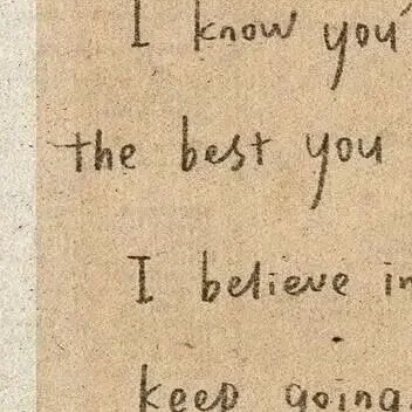 I know you'
the best you
I believe in
keep going.